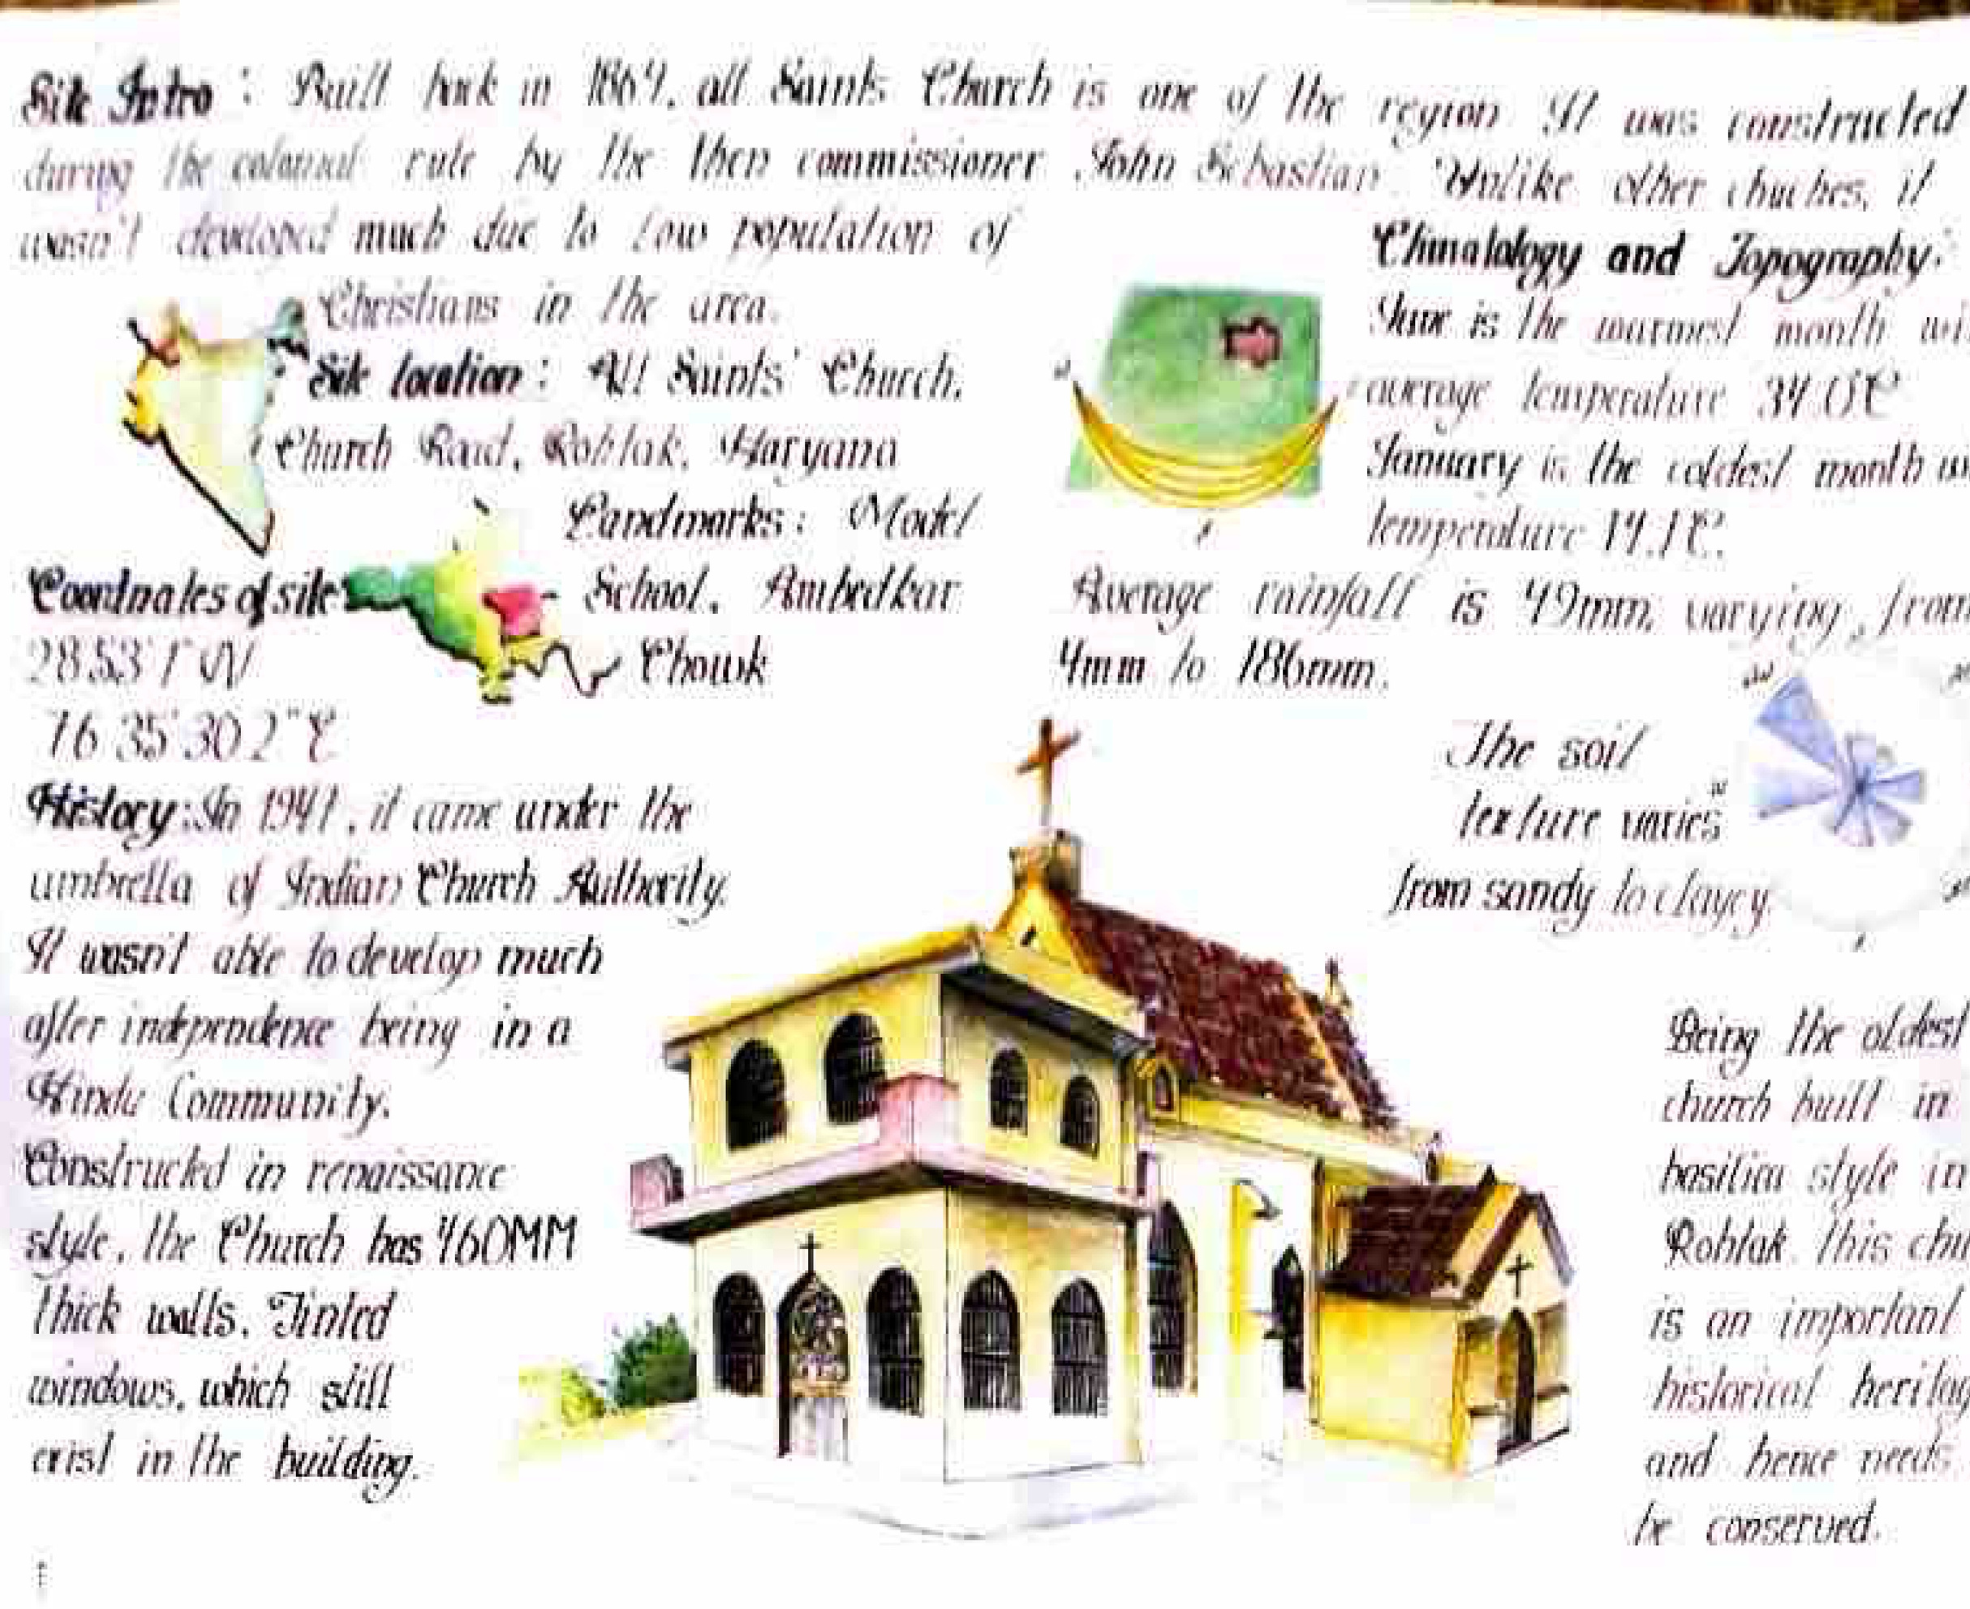 Site Intro : Built back in 1869, all Saints Church is one of the region. It was constructed
during the colonial rule by the then commissioner John Sebastian. Unlike other chuches, it
wasn't developed much due to low population of
Christians in the area.
Site location : All Saints' Church,
Church Road, Rohtak, Haryana
Landmarks : Model
School, Ambedkar
Chowk
Coordnates of site
28 53' N
76 35' 30.2" E
History : In 1947, it came under the
umbrella of Indian Church Authority.
It wasn't able to develop much
after independence being in a
Hindu Community.
Constructed in renaissance
style, the Church has 460MM
thick walls. Tinted
windows, which still
exist in the building.
Climatology and Topography:
June is the warmest month
average temperature 34.0°C
January is the coldest month
temperature 14.1°C.
Average rainfall is 49mm, varying from
4mm to 186mm.
The soil
texture varies
from sandy to clayey.
Being the oldest
church built in
basilica style in
Rohtak, this
is an important
historical
and hence needs
be conserved.